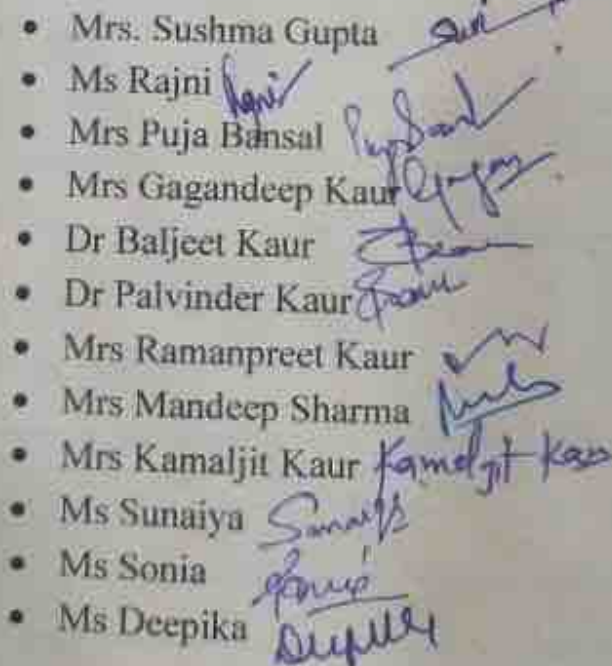 • Mrs. Sushma Gupta
• Ms Rajni Rajni
• Mrs Puja Bansal
• Mrs Gagandeep Kaur Gagan
• Dr Baljeet Kaur
• Dr Palvinder Kaur
• Mrs Ramanpreet Kaur
• Mrs Mandeep Sharma
• Mrs Kamaljit Kaur Kamaljit Kaur
• Ms Sunaiya Sunaiya
• Ms Sonia
• Ms Deepika